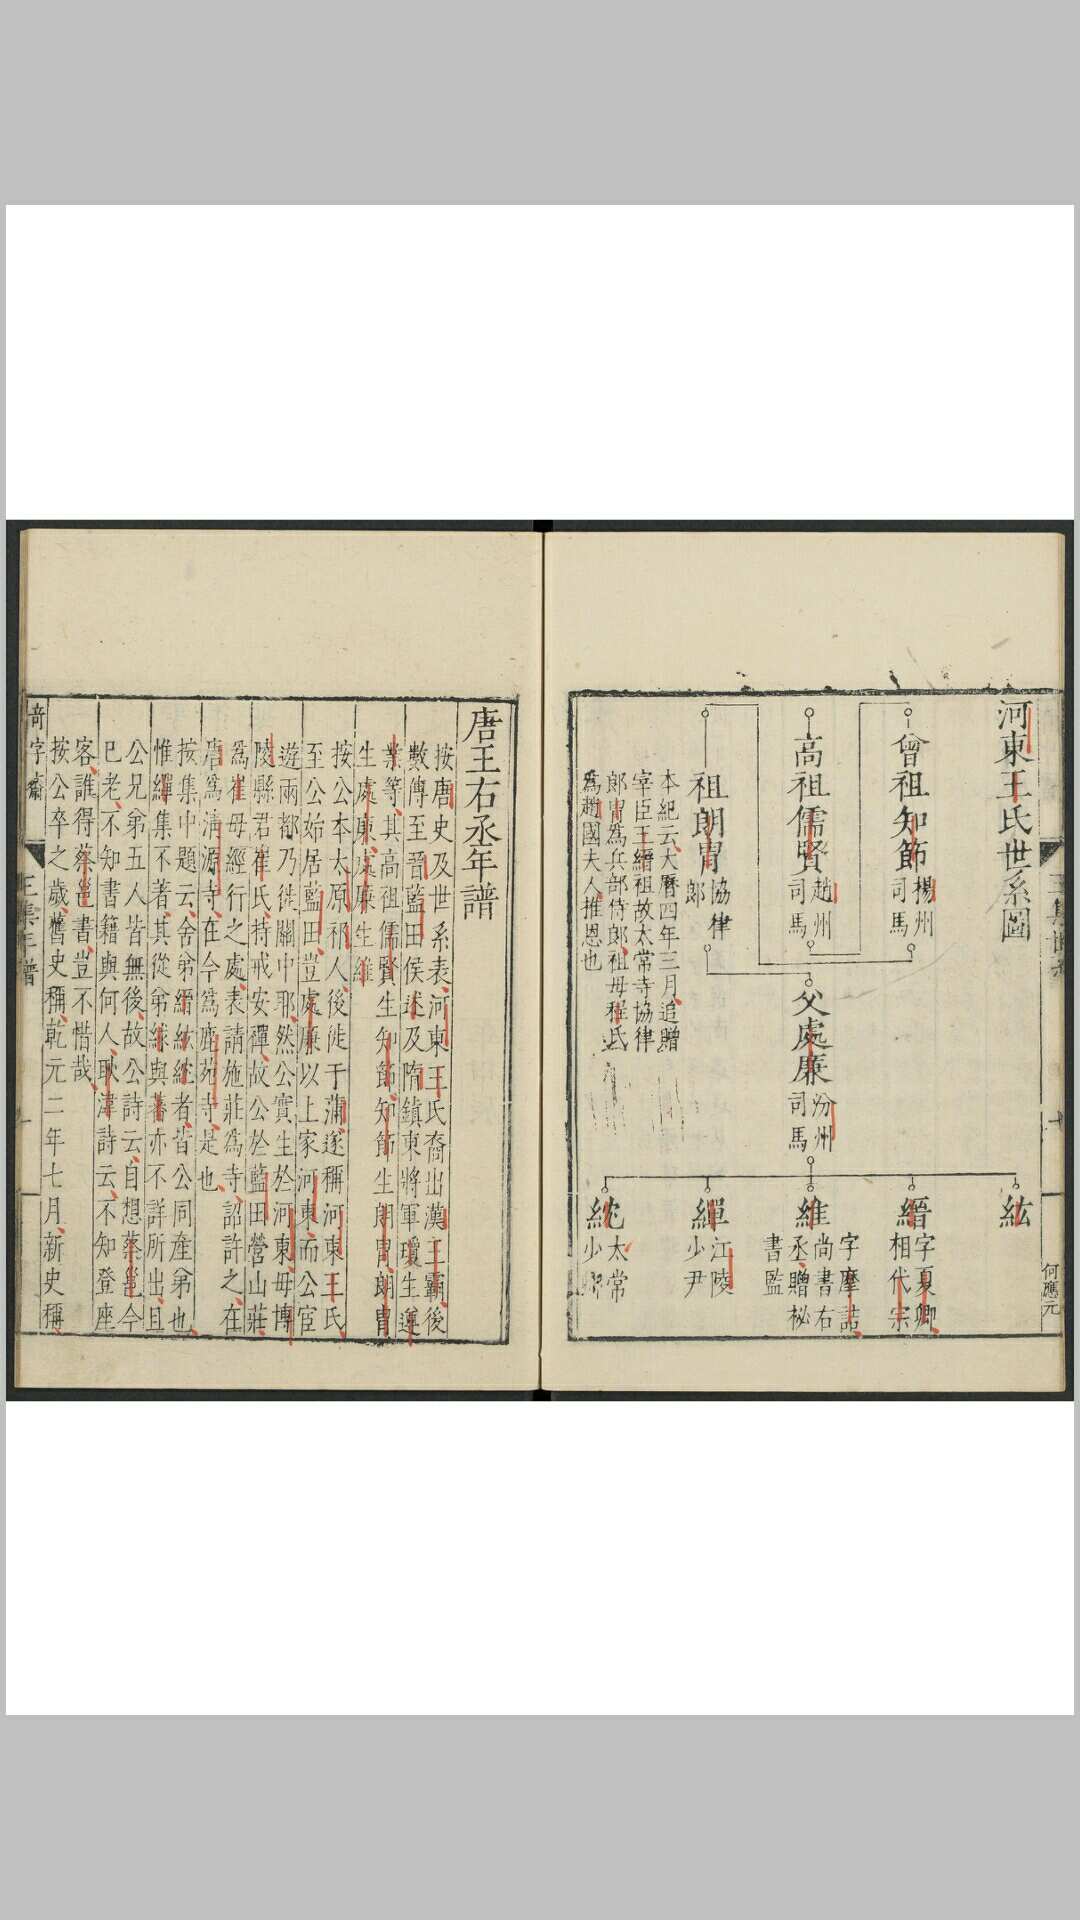 河東王氏世系圖
曾祖知節楊州司馬
高祖儒賢趙州司馬
祖朗胄協律郎
本紀云大曆四年三月追贈
宰臣王縉祖故太常寺協律
郎胄為兵部侍郎祖母程氏
為趙國夫人推恩也
父處廉汾州司馬
紘
縉字夏卿相代宗
維字摩詰尚書右丞贈祕書監
繟江陵少尹
紞太常少
何應元
唐王右丞年譜
按唐史及世系表河東王氏裔出漢王霸後
數傳至晉藍田侯述及隋鎮東將軍瓊生遵
業等其高祖儒賢生知節知節生朗胄朗胄
生處東處廉生維
按公本太原祁人後徙于蒲遂稱河東王氏
至公始居藍田豈處廉以上家河東而公宦
遊兩都乃徙關中耶然公實生於河東毋博
陵縣君崔氏持戒安禪故公於藍田營山莊
為崔母經行之處表請施莊為寺詔許之在
唐為清源寺在今為鹿苑寺是也
按集中題云舍弟縉紘紞者皆公同產弟也
惟繟集不著其從弟綵與蕃亦不詳所出且
公兄弟五人皆無後故公詩云自想蔡邕今
已老不知書籍與何人耿湋詩云不知登座
客誰得蔡邕書豈不惜哉
按公卒之歲舊史稱乾元二年七月新史稱
奇字齋
王集年譜